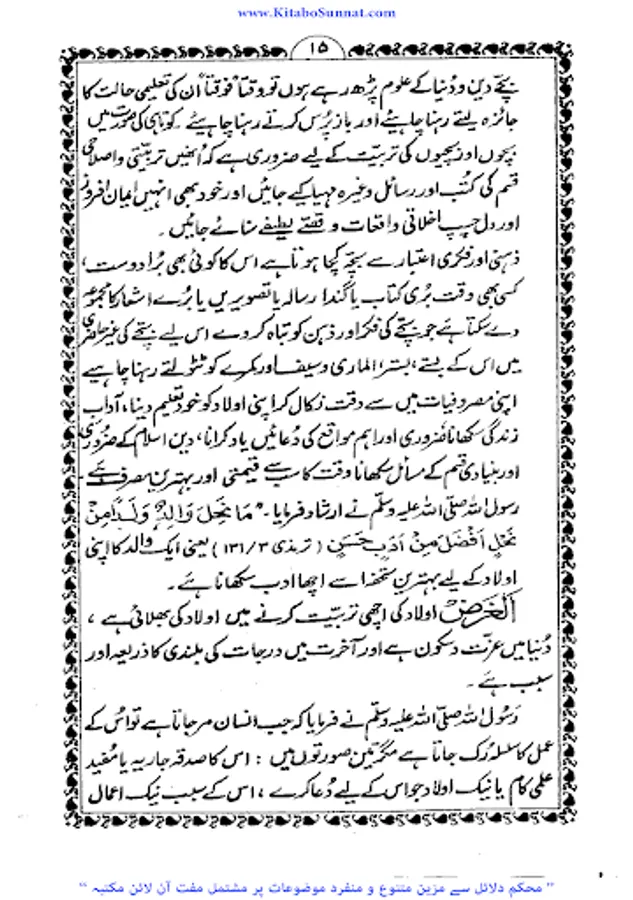 www.KitaboSunnat.com
۱۵
بچّے دین و دُنیا کے علوم پڑھ رہے ہوں تو وقتاً فوقتاً اُن کی تعلیمی حالت کا
جائزہ لیتے رہنا چاہیئے اور باز پُرس کرتے رہنا چاہیئے ۔ کوتاہی کی صورت میں
بچوں اور بچیوں کی تربیت کے لیے ضروری ہے کہ اُنھیں تربیتی و اصلاحی
قسم کی کُتب اور رسائل وغیرہ مہیا کیے جائیں اور خود بھی انہیں ایمان افروز
اور دل چسپ اخلاقی واقعات و قصّے لطیفے سنائے جائیں ۔
ذہنی اور فکری اعتبار سے بچّہ کچا ہوتا ہے اس کا کوئی بھی بُرا دوست ،
کسی بھی وقت بُری کتاب یا گندا رسالہ یا تصویریں یا بُرے اشعار کا مجموعہ
دے سکتا ہے جو بچّے کی فکر اور ذہن کو تباہ کر دے اس لیے بچّے کی غیر حاضری
میں اس کے بستے ، بستر ، الماری و سیف اور کمرے کو ٹٹولتے رہنا چاہیے
اپنی مصروفیات میں سے وقت نکال کر اپنی اولاد کو خود تعلیم دینا ، آداب
زندگی سکھانا ضروری اور اہم مواقع کی دُعائیں یاد کرانا ، دین اسلام کے ضروری
اور بنیادی قسم کے مسائل سکھانا وقت کا سب سے قیمتی اور بہترین مصرف ہے ۔
رسول اللہ صلّی اللہ علیہ وسلّم نے ارشاد فرمایا ۔ " مَا نَحَلَ وَالِدٌ وَلَدًا مِنْ
نَحْلٍ اَفْضَلَ مِنْ اَدَبٍ حَسَنٍ ( ترمذی ۳/۱۳۱ ) یعنی ایک والد کا اپنی
اولاد کے لیے بہترین تحفہ اسے اچھا ادب سکھانا ہے ۔
الغرض اولاد کی اچھی تربیت کرنے میں اولاد کی بھلائی ہے ،
دُنیا میں عزّت و سکون ہے اور آخرت میں درجات کی بلندی کا ذریعہ اور
سبب ہے ۔
رسُول اللہ صلّی اللہ علیہ وسلّم نے فرمایا کہ جب انسان مر جاتا ہے تو اُس کے
عمل کا سلسلہ رُک جاتا ہے مگر تین صورتوں میں : اس کا صدقہ جاریہ یا مُفید
علمی کام یا نیک اولاد جو اس کے لیے دُعا کرے ، اس کے سبب نیک اعمال
" محکم دلائل سے مزین متنوع و منفرد موضوعات پر مشتمل مفت آن لائن مکتبہ "